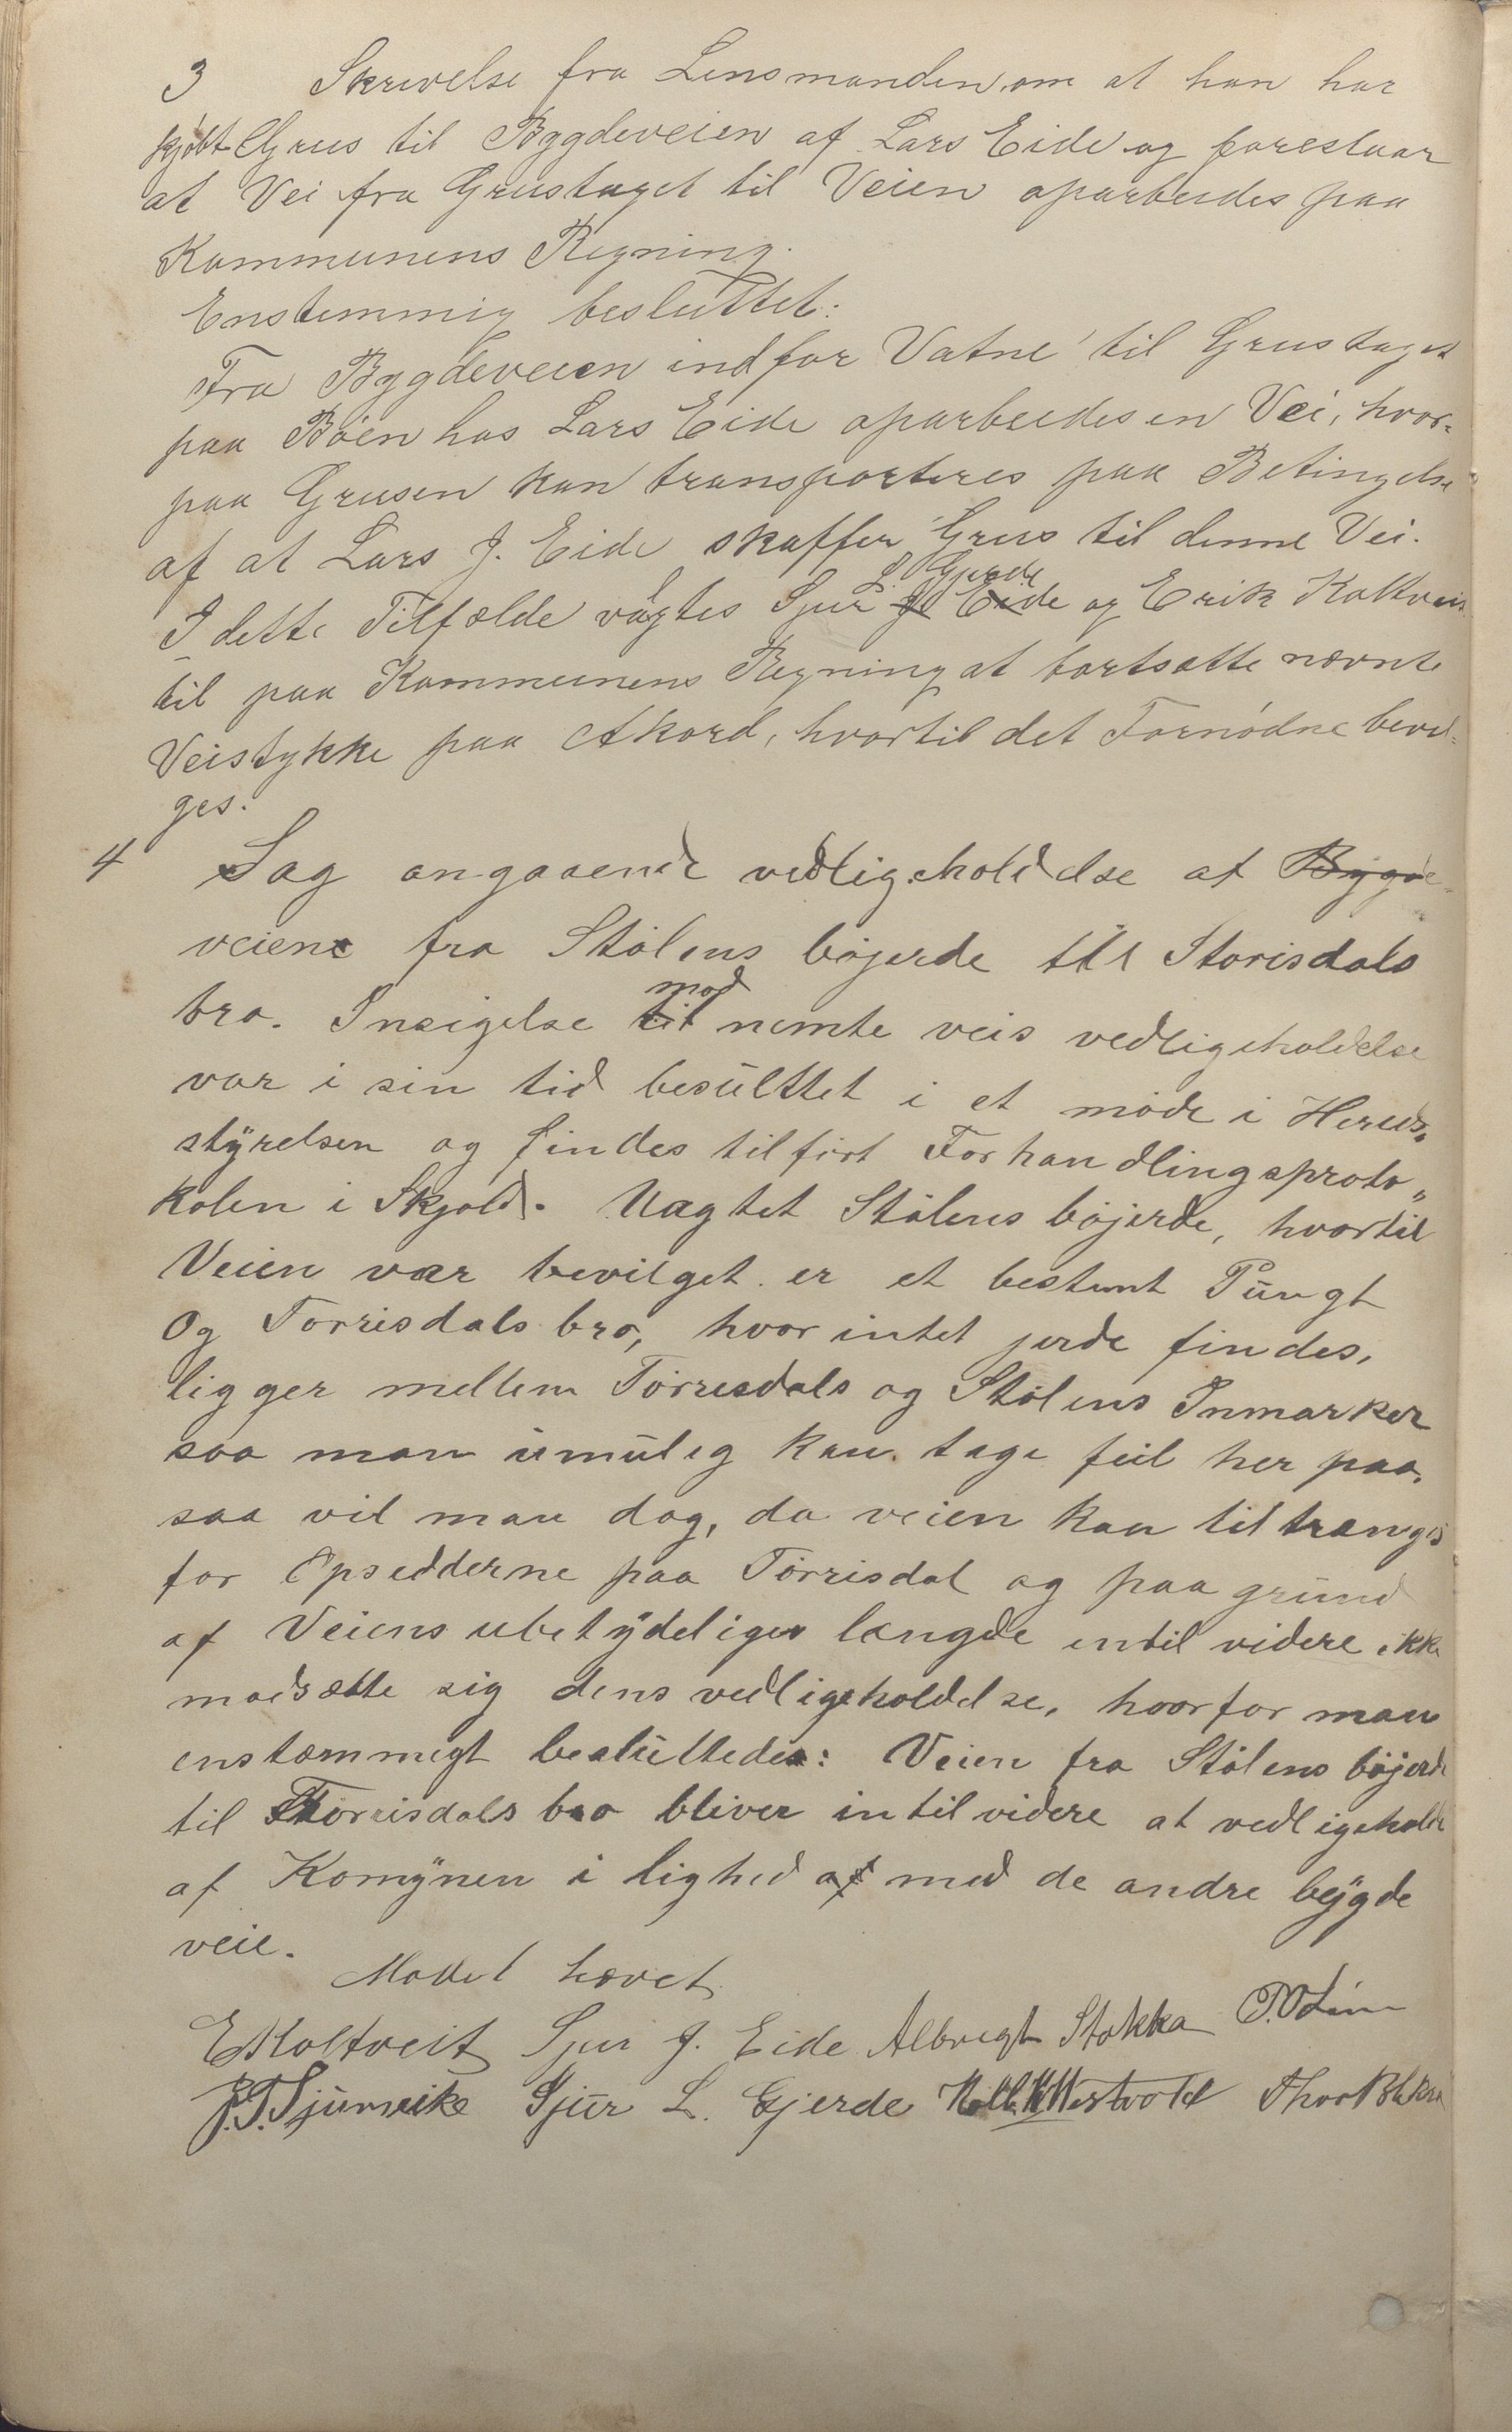 3 Skrivelse fra Lensmanden om at han har
kjøbt Grus til Bygdeveien af Lars Eide og foreslaar
at Vei fra Grustaget til Veien oparbeides paa
Kommunens Regning.
Enstemmig besluttet:
Fra Bygdeveien indfor Vatne til Grustaget
paa Bøen hos Lars Eide oparbeides en Vei, hvor-
paa Grusen kan transporteres paa Betingelse
af at Lars J. Eide skaffer Grus til denne Vei.
L. Gjerde
I dette Tilfælde vægtes Sjur J. Eide og Erik Koltveit
til paa Kommunens Regning at bortsætte nævnte
Veistykke paa Akord, hvortil det Fornødne bevil-
ges.
4 Sag angaaende vedligeholdelse af Bygde-
veiene fra Stølens bøjerde til Storisdals
mod
bro. Insigelse til nemte veis vedligeholdelse
var i sin tid besulttet i et møde i Hereds-
styrelsen og findes tilført Forhandlingsproto„
kolen i Skjold. Uagtet Stølens bøjerde, hvortil
Veien var bevilget er et bestemt Pungt
Og Torrisdals bro, hvor intet jerde findes,
ligger mellem Torrisdals og Stølens Inmarker
saa man umulig kan tage feil her paa,
saa vil man dog, da veien kan tiltrænges
for Opsidderne paa Torrisdal og paa grund
af Veiens ubetydelige længde intil videre ikke
modsætte sig dens vedligeholdelse, hvorfor man
enstæmmigt besluttede: Veien fra Stølens bøjerde
til Torrisdals bro bliver intil videre at vedligeholde
af Komynen i lighed af med de andre bygde
veie.
Mødet hævet
E Koltveit Sjur J. Eide Albregt Stokka
J. T. Sjurseike Sjur L. Gjerde Westvold Thor